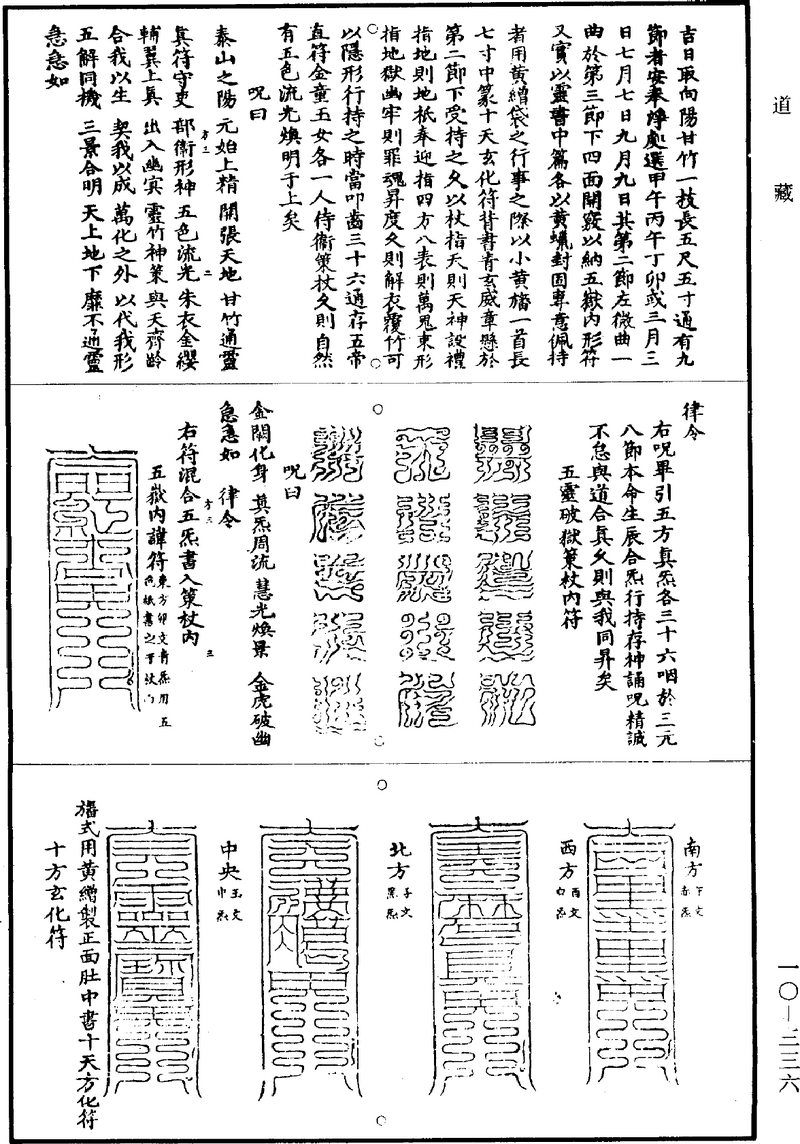 道藏
吉日取向陽甘竹一枝長五尺五寸通有九
節者安奉淨處選甲午丙午丁卯或三月三
日七月七日九月九日其第二節左微曲一
曲於第三節下四面開竅以納五嶽內形符
又實以靈書中篇各以黃蠟封固專意佩持
者用黃繒袋之行事之際以小黃旛一首長
七寸中篆十天玄化符背書青玄威章懸於
第二節下受持之久以杖指天則天神設禮
指地則地祇奉迎指四方八表則萬鬼束形
指地獄幽牢則罪魂昇度久則解衣覆竹可
以隱形行持之時當叩齒三十六通存五帝
直符金童玉女各一人侍衛策杖久則自然
有五色流光煥明于上矣
呪曰
泰山之陽 元始上精 開張天地 甘竹通靈
真符守吏 部衛形神 五色流光 朱衣金纓
輔翼上真 出入幽冥 靈竹神策 與天齊齡
合我以生 契我以成 萬化之外 以代我形
五解同機 三景合明 天上地下 靡不通靈
急急如
律令
右呪畢引五方真炁各三十六咽於三元
八節本命生辰合炁行持存神誦呪精誠
不怠與道合真久則與我同昇矣
五靈破獄策杖內符
呪曰
金闕化身 真炁周流 慧光煥景 金虎破幽
急急如 律令
右符混合五炁書入策杖內
五嶽內諱符 東方卯文青炁用五色紙書之于杖内
南方 午文赤炁
西方 酉文白炁
北方 子文黑炁
中央 王文巾炁
旛式用黃繒製正面肚中書十天方化符
十方玄化符
一〇—三三六